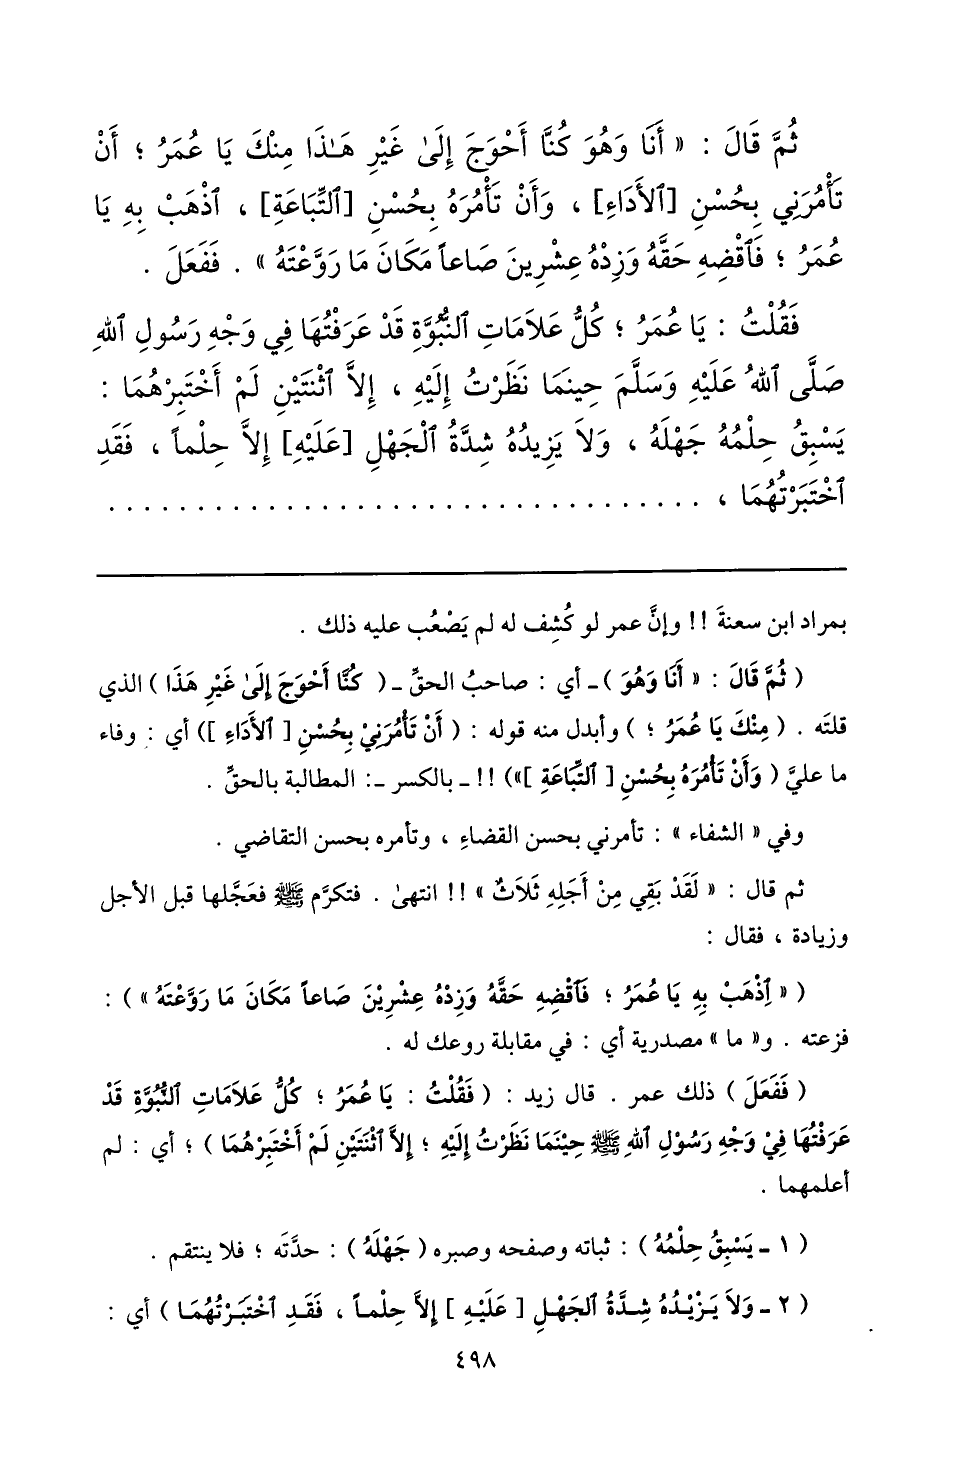 ثُمَّ قَالَ : « أَنَا وَهُوَ كُنَّا أَحْوَجَ إِلَىٰ غَيْرِ هَـٰذَا مِنْكَ يَا عُمَرُ ؛ أَنْ
تَأْمُرَنِي بِحُسْنِ [ٱلأَدَاءِ] ، وَأَنْ تَأْمُرَهُ بِحُسْنِ [ٱلتِّبَاعَةِ] ، ٱذْهَبْ بِهِ يَا
عُمَرُ ؛ فَٱقْضِهِ حَقَّهُ وَزِدْهُ عِشْرِينَ صَاعاً مَكَانَ مَا رَوَّعْتَهُ » . فَفَعَلَ .
فَقُلْتُ : يَا عُمَرُ ؛ كُلُّ عَلاَمَاتِ ٱلنُّبُوَّةِ قَدْ عَرَفْتُهَا فِي وَجْهِ رَسُولِ ٱللهِ
صَلَّى ٱللهُ عَلَيْهِ وَسَلَّمَ حِينَمَا نَظَرْتُ إِلَيْهِ ، إِلاَّ ٱثْنَتَيْنِ لَمْ أَخْتَبِرْهُمَا :
يَسْبِقُ حِلْمُهُ جَهْلَهُ ، وَلاَ يَزِيدُهُ شِدَّةُ ٱلْجَهْلِ [عَلَيْهِ] إِلاَّ حِلْماً ، فَقَدِ
ٱخْتَبَرْتُهُمَا ، . . . . . . . . . . . . . . . . . . . . . . . . . . . . . . . . .
بمراد ابن سعنةَ !! وإنَّ عمر لو كُشِف له لم يَصْعُب عليه ذلك .
( ثُمَّ قَالَ : « أَنَا وَهُوَ ) ـ أي : صاحبُ الحقِّ ـ ( كُنَّا أَحْوَجَ إِلَىٰ غَيْرِ هَذَا ) الذي
قلتَه . ( مِنْكَ يَا عُمَرُ ؛ ) وأبدل منه قوله : ( أَنْ تَأْمُرَنِيْ بِحُسْنِ [ ٱلأَدَاءِ ]) أي : وفاء
ما عليَّ ( وَأَنْ تَأْمُرَهُ بِحُسْنِ [ ٱلتِّبَاعَةِ ]») !! ـ بالكسر ـ : المطالبة بالحقِّ .
وفي « الشفاء » : تأمرني بحسن القضاءِ ، وتأمره بحسن التقاضي .
ثم قال : « لَقَدْ بَقِي مِنْ أَجَلِهِ ثَلَاثٌ » !! انتهىٰ . فتكرَّم ﷺ فعَجَّلها قبل الأجل
وزيادة ، فقال :
( « ٱِذْهَبْ بِهِ يَا عُمَرُ ؛ فَٱقْضِهِ حَقَّهُ وَزِدْهُ عِشْرِيْنَ صَاعاً مَكَانَ مَا رَوَّعْتَهُ » ) :
فزعته . و« ما » مصدرية أي : في مقابلة روعك له .
( فَفَعَلَ ) ذلك عمر . قال زيد : ( فَقُلْتُ : يَا عُمَرُ ؛ كُلُّ عَلاَمَاتِ ٱلنُّبُوَّةِ قَدْ
عَرَفْتُهَا فِيْ وَجْهِ رَسُوْلِ ٱللهِ ﷺ حِيْنَمَا نَظَرْتُ إِلَيْهِ ؛ إِلاَّ ٱثْنَتَيْنِ لَمْ أَخْتَبِرْهُمَا ) ؛ أي : لم
أعلمهما .
( ١ ـ يَسْبِقُ حِلْمُهُ ) : ثباته وصفحه وصبره ( جَهْلَهُ ) : حدَّتَه ؛ فلا ينتقم .
( ٢ ـ وَلاَ يَزِيْدُهُ شِدَّةُ ٱلجَهْلِ [ عَلَيْهِ ] إِلاَّ حِلْماً ، فَقَدِ ٱخْتَبَرْتُهُمَا ) أي :
٤٩٨